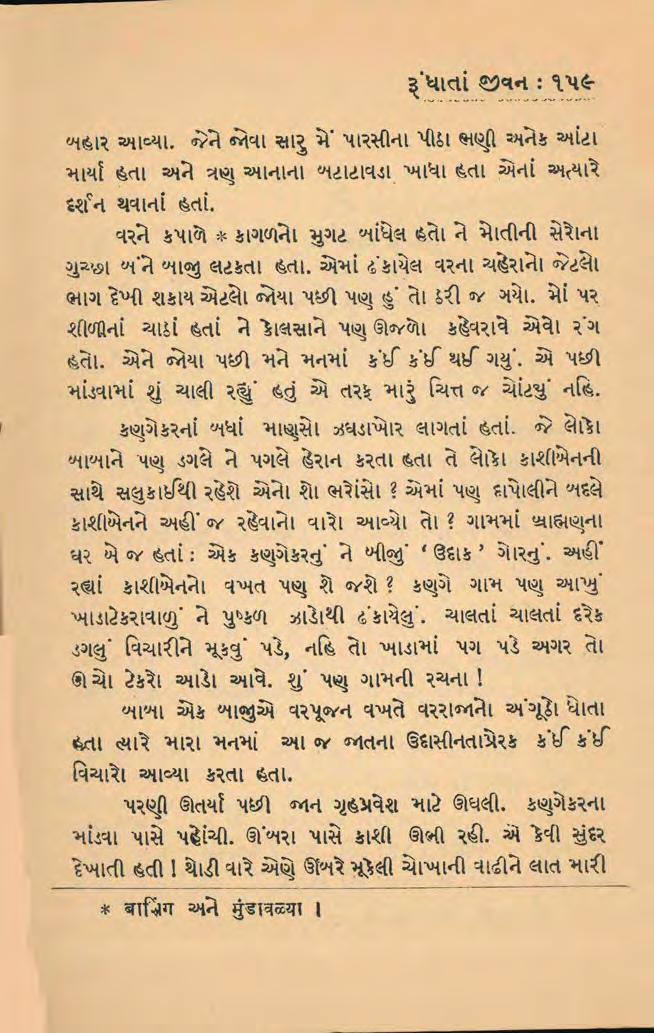 રૂંધાતાં જીવન : ૧૫૯
બહાર આવ્યા. જેને જોવા સારુ મેં પારસીના પીઠા ભણી અનેક આંટા
માર્યા હતા અને ત્રણ આનાના બટાટાવડા ખાધા હતા એનાં અત્યારે
દર્શન થવાનાં હતાં.
વરને કપાળે * કાગળનો મુગટ બાંધેલ હતો ને મોતીની સેરોના
ગુચ્છા બંને બાજુ લટકતા હતા. એમાં ઢંકાયેલ વરના ચહેરાનો જેટલો
ભાગ દેખી શકાય એટલો જોયા પછી પણ હું તો ડરી જ ગયો. મોં પર
શીળીનાં ચાઠાં હતાં ને કોલસાને પણ ઊજળો કહેવરાવે એવો રંગ
હતો. એને જોયા પછી મને મનમાં કંઈ કંઈ થઈ ગયું. એ પછી
માંડવામાં શું ચાલી રહ્યું હતું એ તરફ મારું ચિત્ત જ ચોંટ્યું નહિ.
કણગેકરનાં બધાં માણસો ઝઘડાખોર લાગતાં હતાં. જે લોકો
બાબાને પણ ડગલે ને પગલે હેરાન કરતા હતા તે લોકો કાશીબેનની
સાથે સલુકાઈથી રહેશે એનો શો ભરોંસો ? એમાં પણ દાપોલીને બદલે
કાશીબેનને અહીં જ રહેવાનો વારો આવ્યો તો ? ગામમાં બ્રાહ્મણના
ઘર બે જ હતાં : એક કણગેકરનું ને બીજું ‘ ઉદાક ’ ગોરનું. અહીં
રહ્યાં કાશીબેનનો વખત પણ શે જશે ? કણગે ગામ પણ આખું
ખાડાટેકરાવાળું ને પુષ્કળ ઝાડોથી ઢંકાયેલું. ચાલતાં ચાલતાં દરેક
ડગલું વિચારીને મૂકવું પડે, નહિ તો ખાડામાં પગ પડે અગર તો
ઊંચો ટેકરો આડો આવે. શું પણ ગામની રચના !
બાબા એક બાજુએ વરપૂજન વખતે વરરાજાનો અંગૂઠો ધોતા
હતા ત્યારે મારા મનમાં આ જ જાતના ઉદાસીનતાપ્રેરક કંઈ કંઈ
વિચારો આવ્યા કરતા હતા.
પરણી ઊતર્યા પછી જાન ગૃહપ્રવેશ માટે ઊઘલી. કણગેકરના
માંડવા પાસે પહોંચી. ઊંબરા પાસે કાશી ઊભી રહી. એ કેવી સુંદર
દેખાતી હતી ! થોડી વારે એણે ઊંબરે મૂકેલી ચોખાની વાઢીને લાત મારી
* बाशिंग અને मुंडावळ्या ।